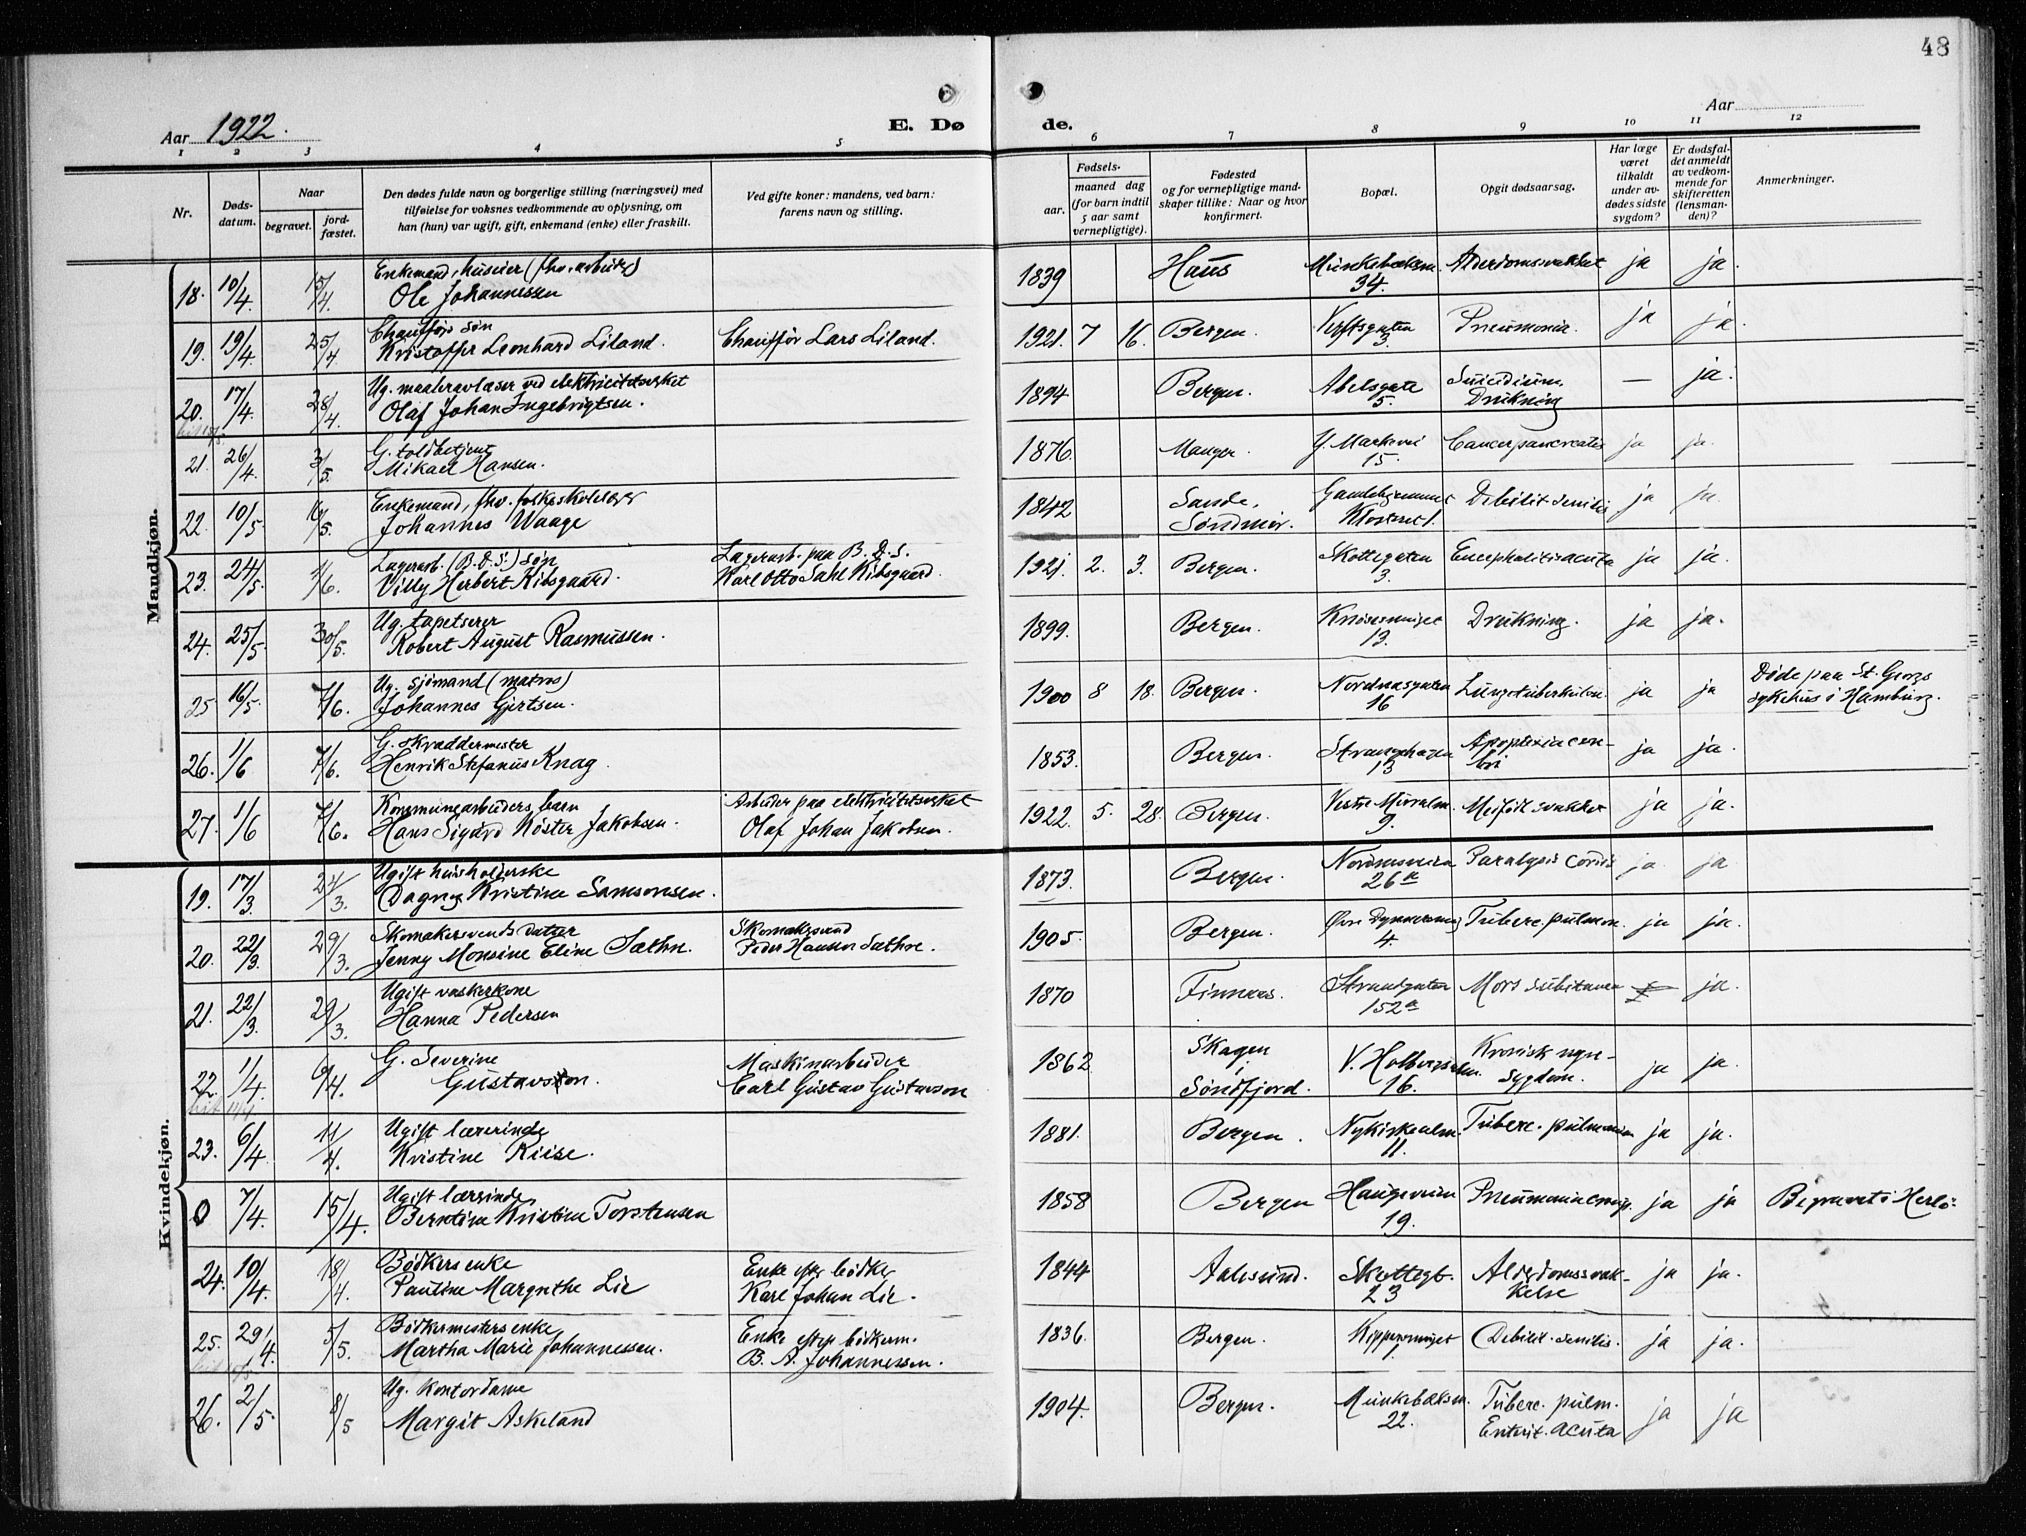 48
Aar 1922.
E. Døde.
Aar
1 2 3 4 5 6 7 8 9 10 11 12
Nr.
Dødsdatum.
Naar
begravet.
jordfæstet.
Den dødes fulde navn og borgerlige stilling (næringsvei) med
tilføielse for voksnes vedkommende av oplysning, om
han (hun) var ugift, gift, enkemand (enke) eller fraskilt.
Ved gifte koner: mandens, ved barn:
farens navn og stilling.
Fødsels-
aar.
maaned dag
(for barn indtil
5 aar samt
vernepligtige).
Fødested
og for vernepligtige mandskaper tillike: Naar og hvor
konfirmert.
Bopæl.
Opgit dødsaarsag.
Har læge
været
tilkaldt
under avdødes sidste
sygdom?
Er dødsfaldet anmeldt
av vedkommende for
skifteretten
(lensmanden)?
Anmerkninger.
Mandkjøn.
18. 10/4 15/4 Enkemand, huseier (fhv. arbeider)
Ole Johannessen 1839 Haus Munkebæksm. 34. Alderdomssvakhet ja ja.
19. 19/4 25/4 Chauffør søn
Kristoffer Leonhard Liland. Chauffør Lars Liland. 1921. 7 16. Bergen. Verftsgaten 3. Pneumonia. ja ja.
20. 17/4 28/4 Ug. maaleravlæser ved elektricitetsverket
Olaf Johan Ingebrigtsen. 1894 Bergen. Abelsgate 5. Suicidium. Drukning — ja.
21. 26/4 3/5. G. toldbetjent
Mikael Hansen. 1876. Manger. Y. Markevei 15. Cancer pancreatis ja ja.
22. 10/5 16/5. Enkemand, fhv. folkeskolelærer
Johannes Waage 1842 Sande, Søndmør. Gamlehjemmet Klosteret 1. Debilit. senilis ja ja.
23. 24/5 1/6. Lagerarb. (B.D.S.) søn
Villy Herbert Kibsgaard. Lagerarb. paa B.D.S.
Karl Otto Dahl Kibsgaard. 1921. 2. 3. Bergen. Skottegaten 3. Encephalitis acuta ja ja.
24. 25/5 30/5. Ug. tapetserer
Robert August Rasmussen. 1899. Bergen. Knøsesmuget 13. Drukning. ja ja.
25 16/5 7/6. Ug. sjømand (matros)
Johannes Gjertsen. 1900 8 18. Bergen. Nordnæsgaten 16 Lungetuberkulose. ja ja Døde paa St. Georgs
sykehus i Hamburg.
26. 1/6 7/6. G. skræddermester
Henrik Stefanus Knag. 1853. Bergen. Strangehagen 13 Apoplexia cerebri ja ja.
27. 1/6 7/6. Kommunearbeiders barn
Hans Sigurd Køster Jakobsen. Arbeider paa elektricitetsverket
Olaf Johan Jakobsen. 1922. 5. 28. Bergen. Vestre Muralm. 9. Medfødt svakhet ja ja.
Kvindekjøn.
19. 17/3 24/3. Ugift husholderske
Dagny Kristine Samsonsen. 1873. Bergen. Nordnæsveien 26a Paralysis cordis ja ja
20. 22/3. 29/3. Skomakersvends datter
Jenny Monsine Eline Sæthre. Skomakersvend
Peder Hansen Sæthre. 1905. Bergen. Øvre Dynnersmug 4. Tuberc. pulmon. ja ja.
21. 22/3 29/3. Ugift vaskerkone
Hanna Pedersen 1870 Finnaas. Strandgaten 152a Mors subitanea ja.
22. 1/4 6/4. G. Severine
Gustavson. Maskinarbeider
Carl Gustav Gustavson 1862 Skagen i Søndfjord. V. Holbergsalm. 16. Kronisk nyresygdom. ja ja.
23. 6/4 11/4. Ugift lærerinde
Kristine Riise. 1881. Bergen. Nykirkealm. 11. Tuberc. pulmonum ja ja.
0 7/4. 15/4. Ugift lærerinde
Berntine Kristine Torstensen 1858 Bergen Haugeveien 19. Pneumonia croup. ja ja Begravet i Herlø.
24. 10/4. 18/4. Bødkers enke
Pauline Margrethe Lie Enke efter bødker
Karl Johan Lie. 1844 Aalesund. Skottegt. 23 Alderdomssvakkelse ja ja.
25. 29/4. 5/5. Bødkermesters enke
Martha Marie Johannessen. Enke efter bødkerm.
B. A. Johannessen. 1836. Bergen. Kippersmuget 1. Debilit. senilis. ja ja.
26. 2/5. 8/5 Ug. kontordame
Margit Askeland 1904. Bergen. Munkebæksm. 22. Tuberc. pulm.
Enterit. acuta ja ja